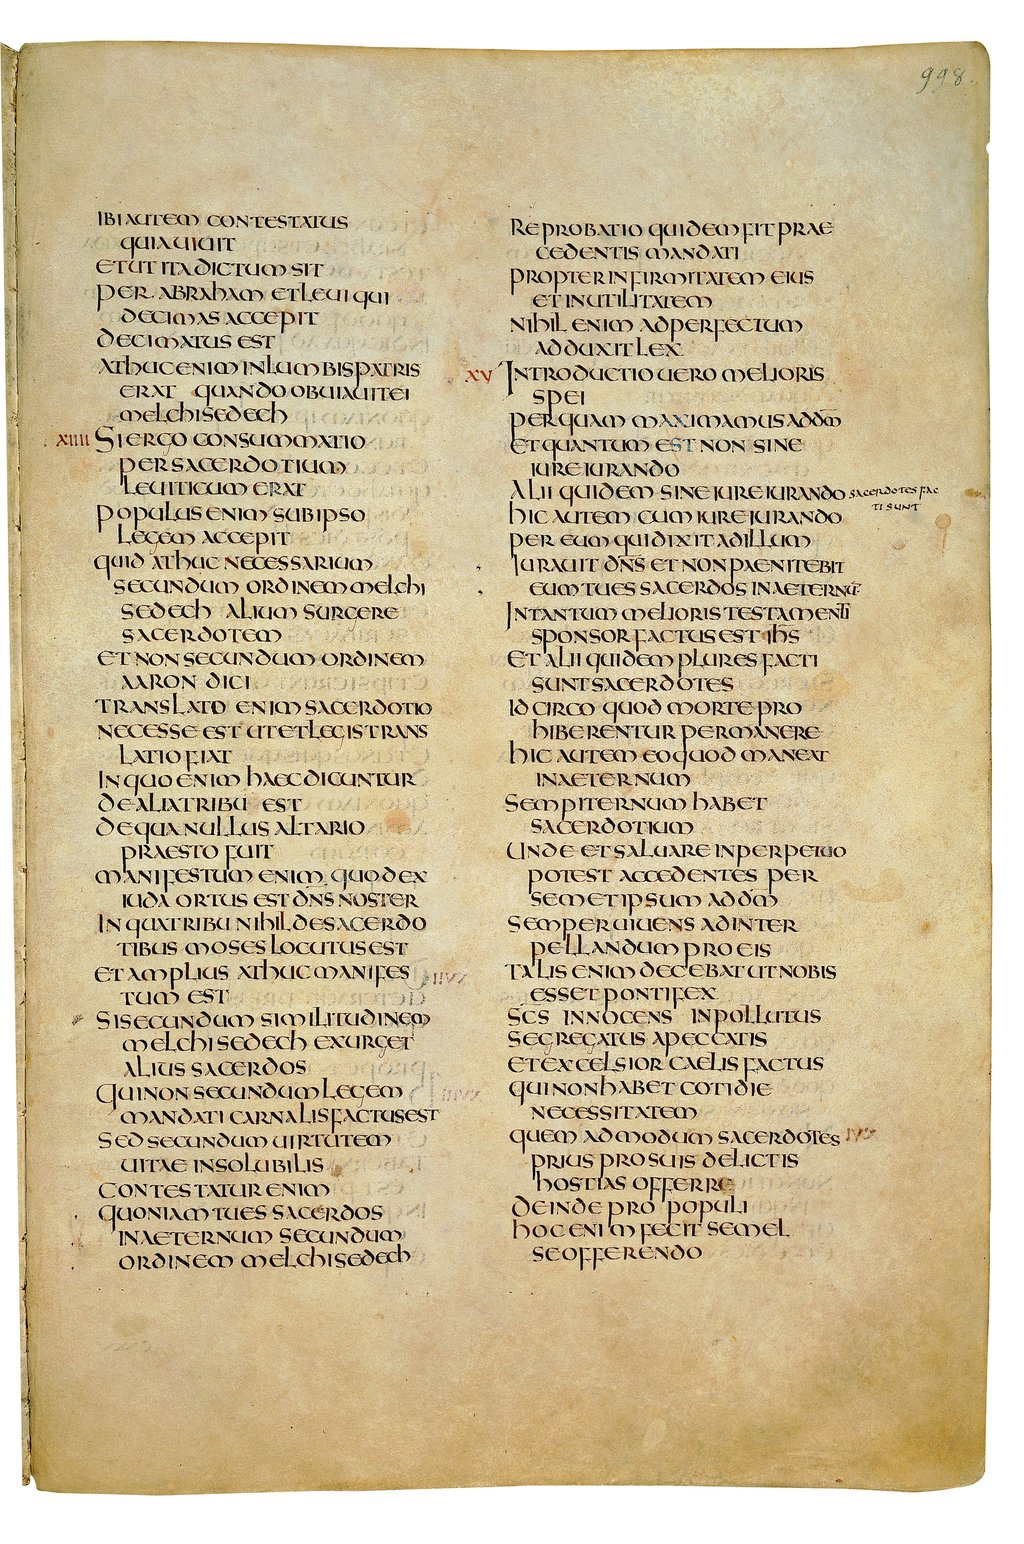 998
IBI AUTEM CONTESTATUS
QUIA UIUIT
ET UT ITA DICTUM SIT
PER ABRAHAM ET LEUI QUI
DECIMAS ACCEPIT
DECIMATUS EST
ATHUC ENIM IN LUMBIS PATRIS
ERAT QUANDO OBUIAUIT EI
MELCHISEDECH
XIIII SI ERGO CONSUMMATIO
PER SACERDOTIUM
LEUITICUM ERAT
POPULUS ENIM SUB IPSO
LEGEM ACCEPIT
QUID ATHUC NECESSARIUM
SECUNDUM ORDINEM MELCHI
SEDECH ALIUM SURGERE
SACERDOTEM
ET NON SECUNDUM ORDINEM
AARON DICI
TRANSLATO ENIM SACERDOTIO
NECESSE EST UT ET LEGIS TRANS
LATIO FIAT
IN QUO ENIM HAEC DICUNTUR
DE ALIA TRIBU EST
DE QUA NULLUS ALTARIO
PRAESTO FUIT
MANIFESTUM ENIM QUOD EX
IUDA ORTUS EST DN̅S NOSTER
IN QUA TRIBU NIHIL DE SACERDO
TIBUS MOSES LOCUTUS EST
ET AMPLIUS ATHUC MANIFES
TUM EST
SI SECUNDUM SIMILITUDINEM
MELCHISEDECH EXURGET
ALIUS SACERDOS
QUI NON SECUNDUM LEGEM
MANDATI CARNALIS FACTUS EST
SED SECUNDUM UIRTUTEM
UITAE INSOLUBILIS
CONTESTATUR ENIM
QUONIAM TU ES SACERDOS
IN AETERNUM SECUNDUM
ORDINEM MELCHISEDECH
REPROBATIO QUIDEM FIT PRAE
CEDENTIS MANDATI
PROPTER INFIRMITATEM EIUS
ET INUTILITATEM
NIHIL ENIM AD PERFECTUM
ADDUXIT LEX
XV INTRODUCTIO UERO MELIORIS
SPEI
PER QUAM MAXIMAMUS AD DM̅
ET QUANTUM EST NON SINE
IURE IURANDO
ALII QUIDEM SINE IURE IURANDO SACERDOTES FAC
TI SUNT
HIC AUTEM CUM IURE IURANDO
PER EUM QUI DIXIT AD ILLUM
IURAUIT DN̅S ET NON PAENITEBIT
EUM TU ES SACERDOS IN AETERNU̅
IN TANTUM MELIORIS TESTAMENTI
SPONSOR FACTUS EST IH̅S
ET ALII QUIDEM PLURES FACTI
SUNT SACERDOTES
IDCIRCO QUOD MORTE PRO
HIBERENTUR PERMANERE
HIC AUTEM EO QUOD MANEAT
IN AETERNUM
SEMPITERNUM HABET
SACERDOTIUM
UNDE ET SALUARE IN PERPETUO
POTEST ACCEDENTES PER
SEMETIPSUM AD DM̅
SEMPER UIUENS AD INTER
PELLANDUM PRO EIS
TALIS ENIM DECEBAT UT NOBIS
ESSET PONTIFEX
SC̅S INNOCENS INPOLLUTUS
SEGREGATUS A PECCATIS
ET EXCELSIOR CAELIS FACTUS
QUI NON HABET COTIDIE
NECESSITATEM
QUEM AD MODUM SACERDOTES
PRIUS PRO SUIS DELICTIS
HOSTIAS OFFERRE
DEINDE PRO POPULI
HOC ENIM FECIT SEMEL
SE OFFERENDO